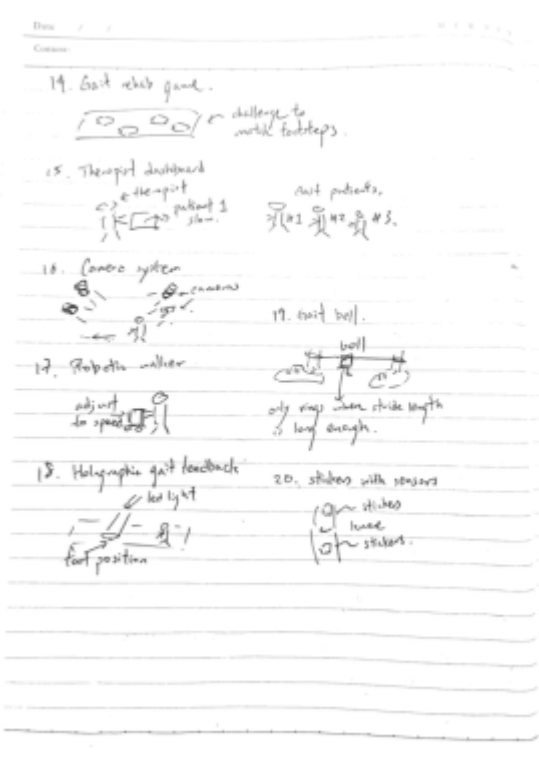 Date / /
14. Gait rehab game.
challenge to
match footsteps.
15. Therapist dashboard
therapist
patient 1
slow.
Gait patients.
#1 #2 #3.
16. Camera system
cameras
17. Robotic walker
adjust
to speed
18. Holographic gait feedback
led light
foot position
19. Gait bell.
bell
only rings when stride length
is long enough.
20. stickers with sensors
stickers
knee
stickers.